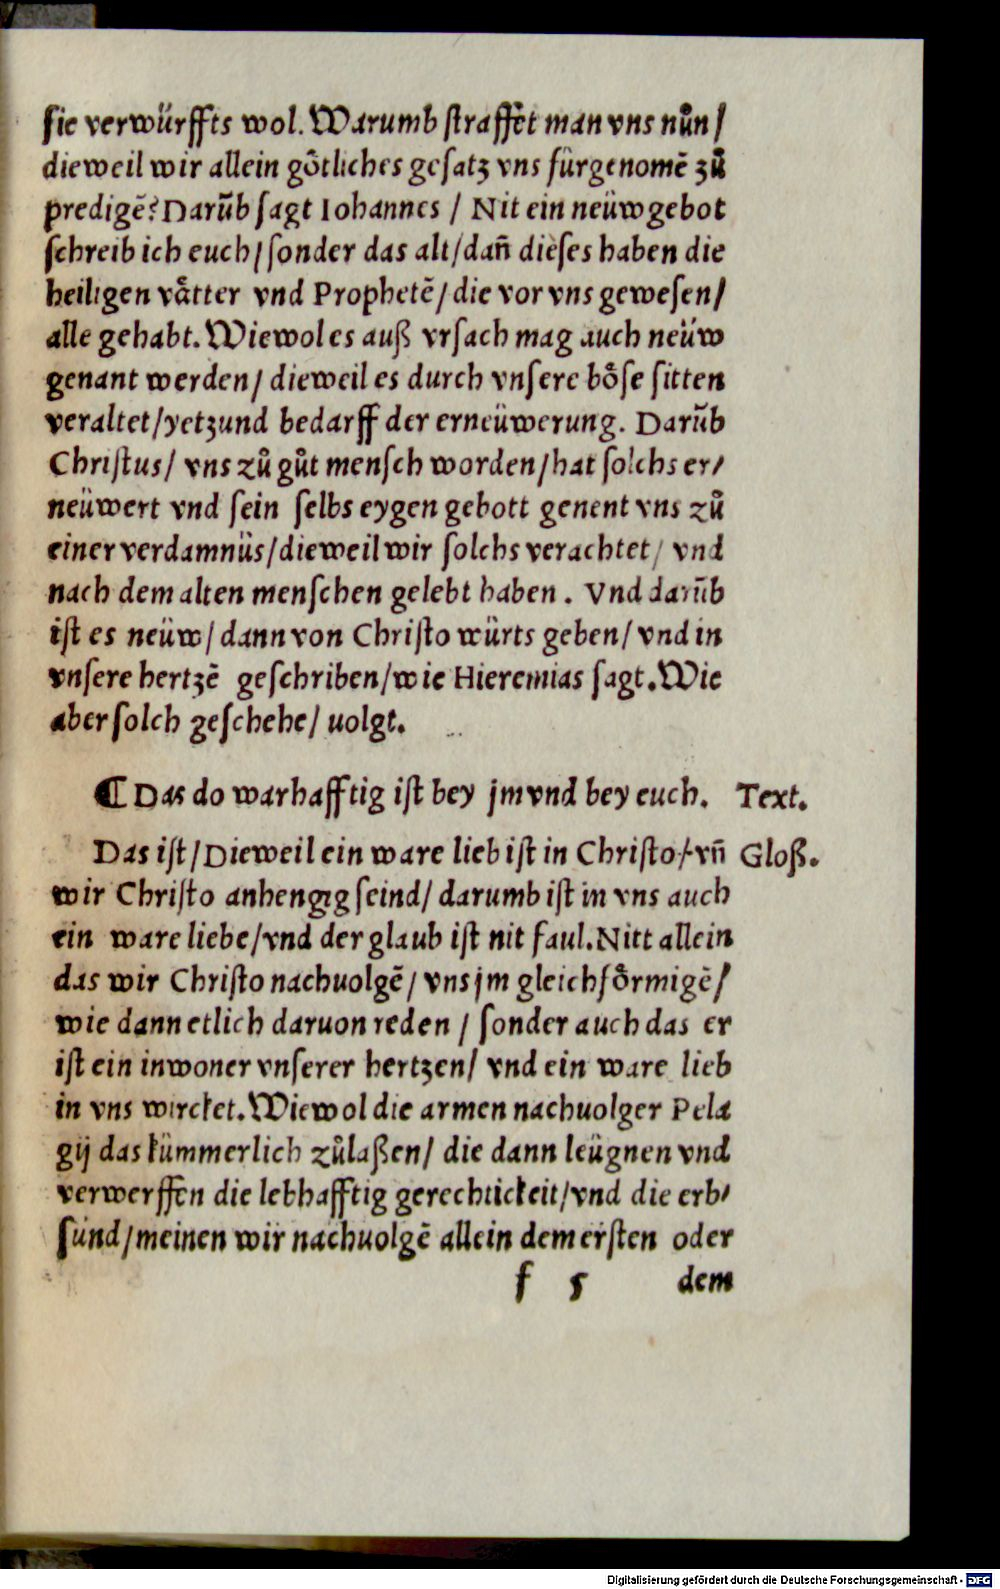 ſie verwürffts wol. Warumb ſtraffet man vns nůn /
dieweil wir allein goͤtliches geſatz vns fürgenomē zů
predigē? Darūb ſagt Iohannes / Nit ein neüw gebot
ſchreib ich euch / ſonder das alt / dañ dieſes haben die
heiligen vaͤtter vnd Prophetē / die vor vns geweſen /
alle gehabt. Wiewol es auß vrſach mag auch neüw
genant werden / dieweil es durch vnſere boͤſe ſitten
veraltet / yetzund bedarff der erneüwerung. Darūb
Chriſtus / vns zů gůt menſch worden / hat ſolchs er/
neüwert vnd ſein ſelbs eygen gebott genent vns zů
einer verdamnüs / dieweil wir ſolchs verachtet / vnd
nach dem alten menſchen gelebt haben . Vnd darūb
iſt es neüw / dann von Chriſto würts geben / vnd in
vnſere hertzē geſchriben / wie Hieremias ſagt. Wie
aber ſolch geſchehe / uolgt.
¶ Das do warhafftig iſt bey jm vnd bey euch. Text.
Das iſt / Dieweil ein ware lieb iſt in Chriſto / vñ Gloß.
wir Chriſto anhengig ſeind / darumb iſt in vns auch
ein ware liebe / vnd der glaub iſt nit faul. Nitt allein
das wir Chriſto nachuolgē / vns jm gleichfoͤrmigē /
wie dann etlich daruon reden / ſonder auch das er
iſt ein inwoner vnſerer hertzen / vnd ein ware lieb
in vns wircket. Wiewol die armen nachuolger Pela
gij das kümmerlich zůlaßen / die dann leügnen vnd
verwerffen die lebhafftig gerechtickeit / vnd die erb/
ſünd / meinen wir nachuolgē allein dem erſten oder
f 5 dem
Digitalisierung gefördert durch die Deutsche Forschungsgemeinschaft - DFG